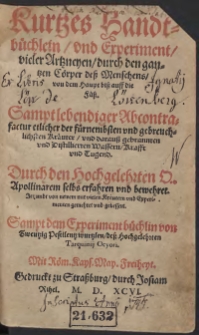 Kurtzes Handt-
büchlein / vnd Experiment /
vieler Artzneyen / durch den gan-
tzen Cörper deß Menschens
von dem Haupt biß auff die
Füß.
Ex Libris Ignatij
Löw de Löwenberg.
Sampt lebendiger Abcontra-
factur etlicher der fürnembsten vnd gebreuch-
lichsten Kräuter / vnd darauß gebrannten
vnd Distillierten Wassern / Krafft
vnd Tugend.
Durch den Hochgelehrten Q.
Apollinarem selbs erfahren vnd bewehret.
Sampt dem Experiment büchlin von
Zwentzig Pestilentz wurtzlen / deß Hochgelehrten
Tarquinij Ocyori.
Mit Röm. Kays. May. Freiheyt.
Gedruckt zu Straßburg / durch Josiam
Rihel. M. D. XCVI.
21.632